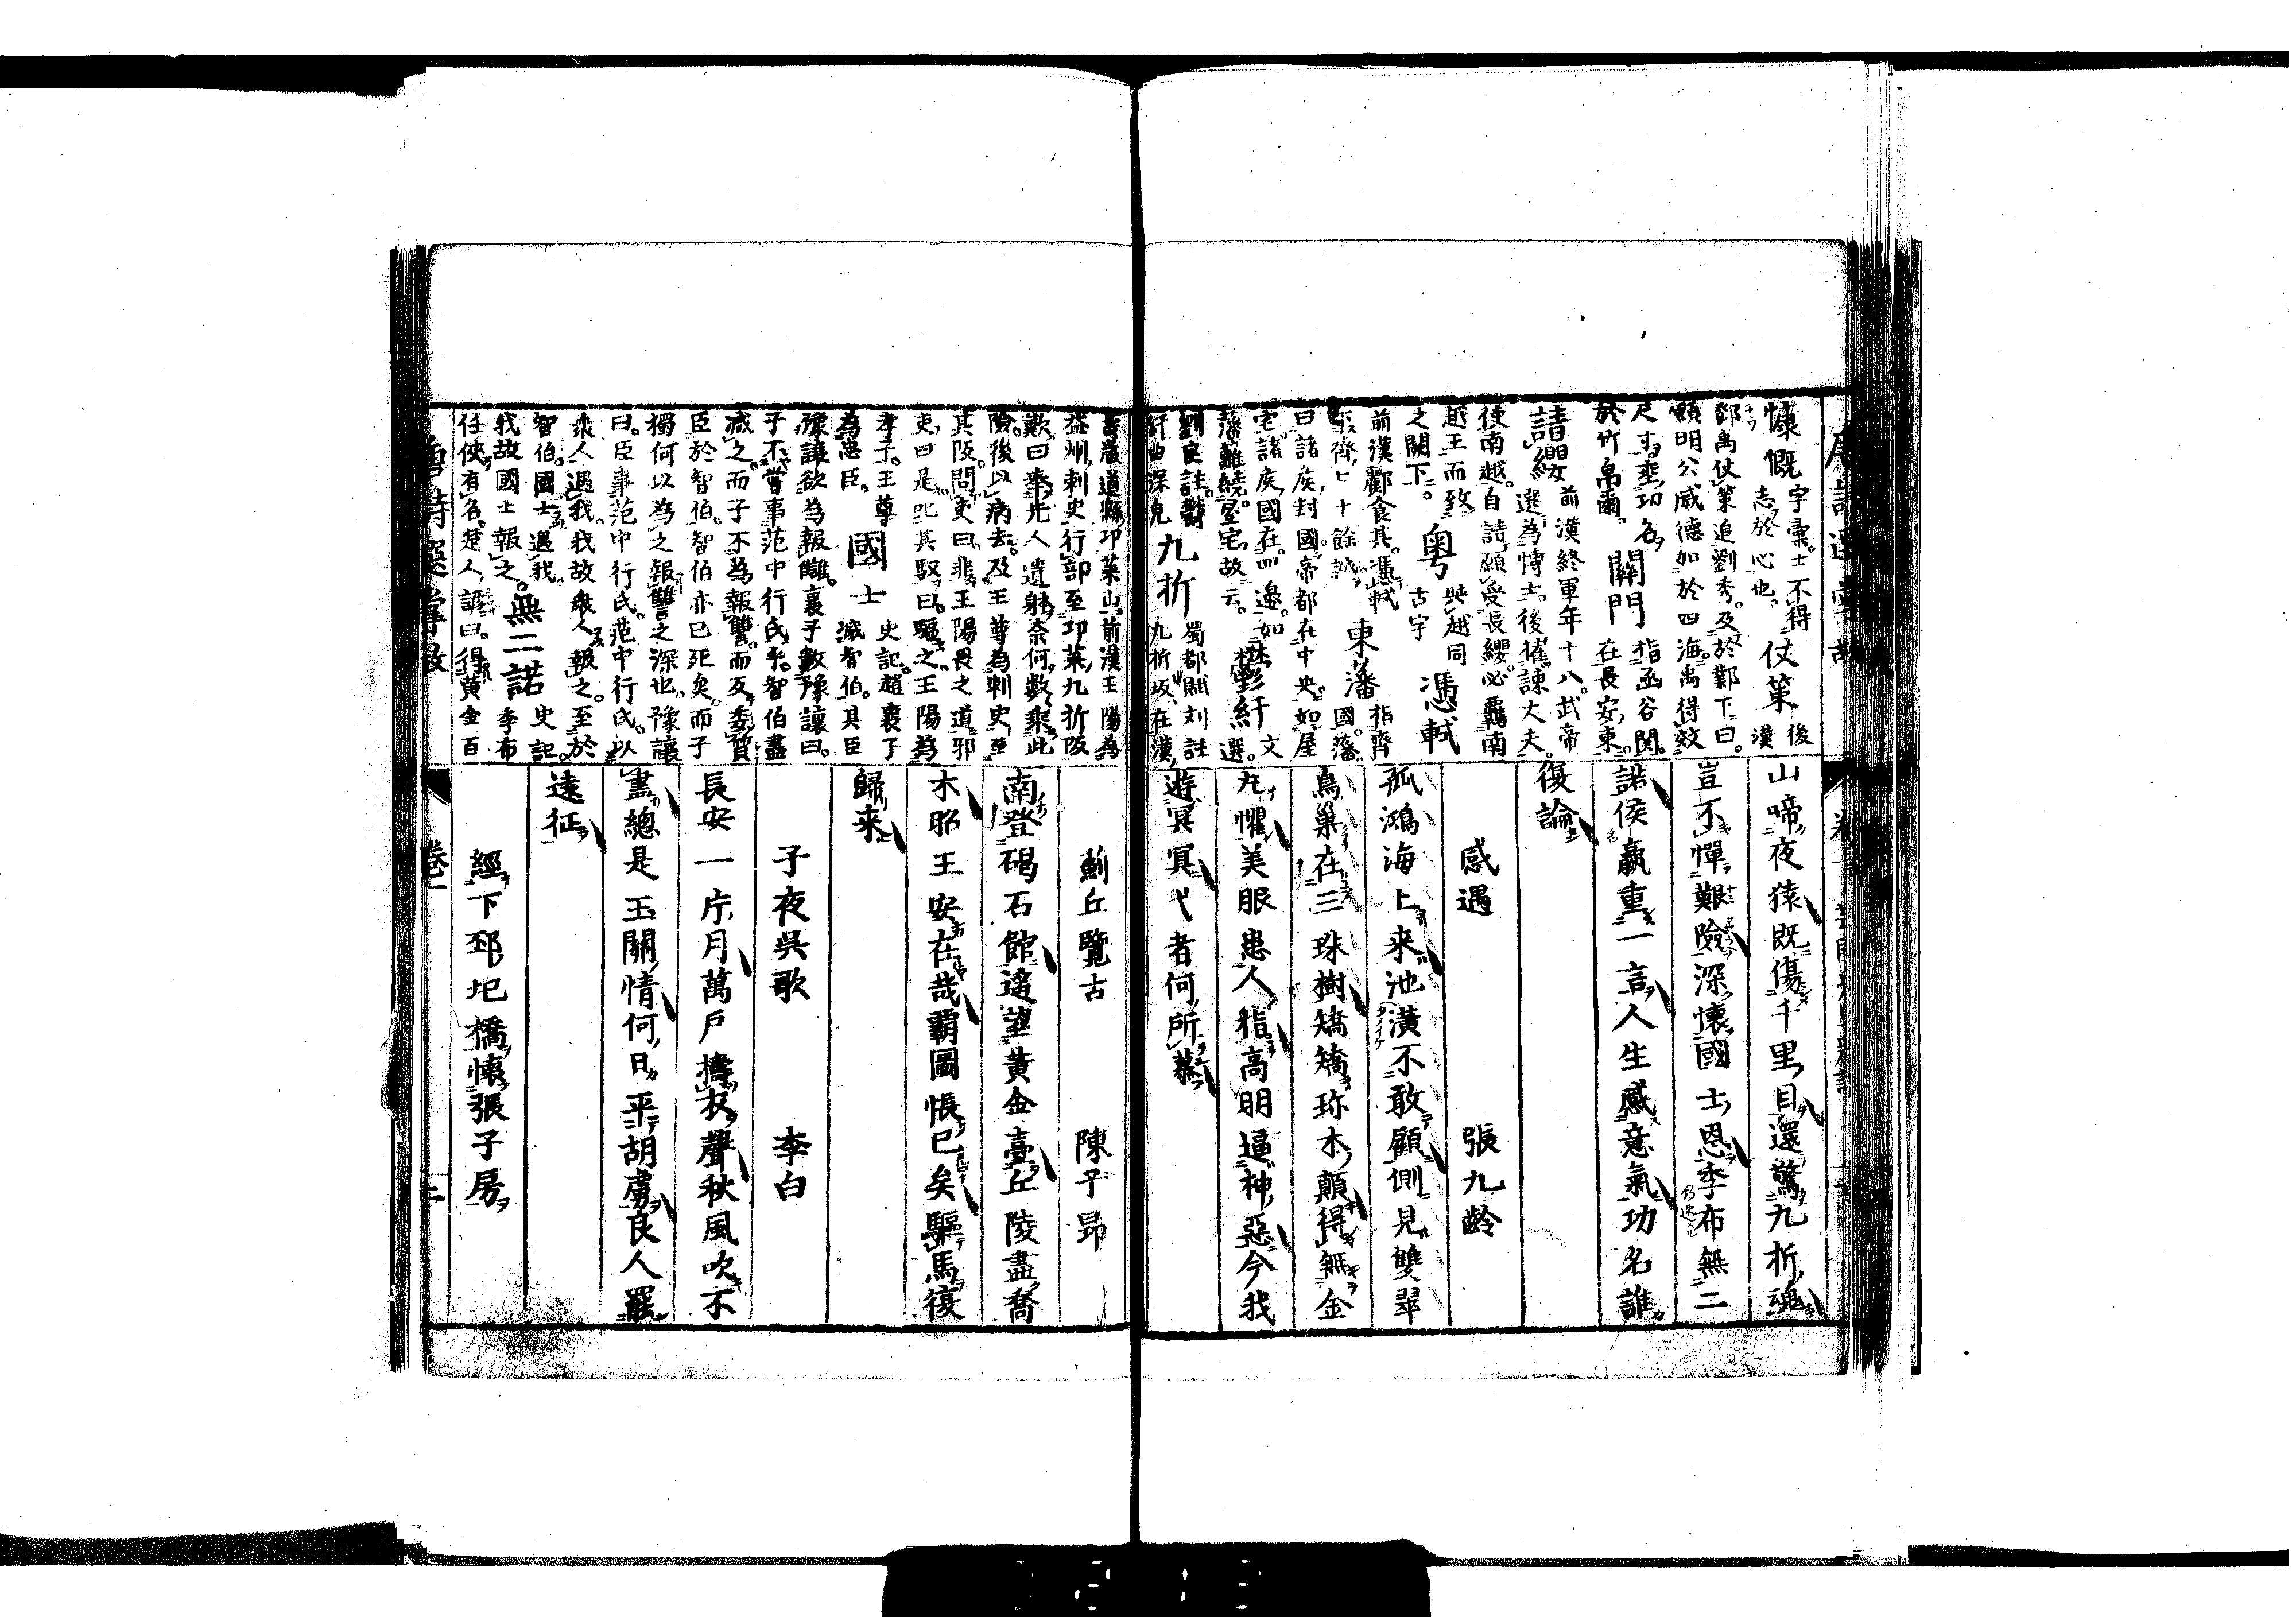 慷慨 字彙士不得志於心也 仗策 後漢
鄧禹仗策追劉秀及於鄴下曰
願明公威德加於四海禹得效
尺寸垂功名於竹帛爾 關門 指函谷関在長安東
請纓 前漢終軍年十八武帝選為博士後擢諫大夫
使南越自請願受長纓必羈南
越王而致之闕下 粤 古字與越同 憑軾
前漢酈食其憑軾下齊七十餘城 東藩 指齊國藩
曰諸侯封國帝都在中央如屋
宅諸侯國在四邊如
藩籬繞屋宅故云 鬱紆 文選
劉良註鬱紆曲深皃 九折 蜀都賦刘註九折坂在漢
山啼夜猿既傷千里目還驚九折魂
豈不憚艱險深懷國士恩季布無二
諾侯嬴重一言人生感意氣功名誰
復論
感遇 張九齡
孤鴻海上来池潢不敢顧側見雙翠
鳥巢在三珠樹矯矯珍木顛得無金
丸懼美服患人指高明逼神惡今我
遊冥冥弋者何所慕
壽嚴道縣邛萊山前漢王陽為
益州刺史行部至邛萊九折阪
歎曰奉先人遺躰奈何數乘此
險後以病去及王尊為刺史至
其阪問吏曰非王陽畏之道邪
吏曰是叱其馭曰驅之王陽為
孝子王尊為忠臣 國士 史記趙襄子滅智伯其臣
豫讓欲為報讎襄子數豫讓曰
子不嘗事范中行氏乎智伯盡
滅之而子不為報讐而反委質
臣於智伯智伯亦已死矣而子
獨何以為之報讐之深也豫讓
曰臣事范中行氏范中行氏以
衆人遇我我故衆人報之至於
智伯國士遇我我故國士報之 無二諾 史記季布
任俠有名楚人諺曰得黄金百
薊丘覽古 陳子昂
南登碣石館遙望黄金臺丘陵盡喬
木昭王安在哉霸圖悵已矣驅馬復
歸来
子夜吳歌 李白
長安一片月萬戸擣衣聲秋風吹不
盡總是玉關情何日平胡虜良人罷
遠征
經下邳圯橋懐張子房
唐詩選掌故
卷一
二